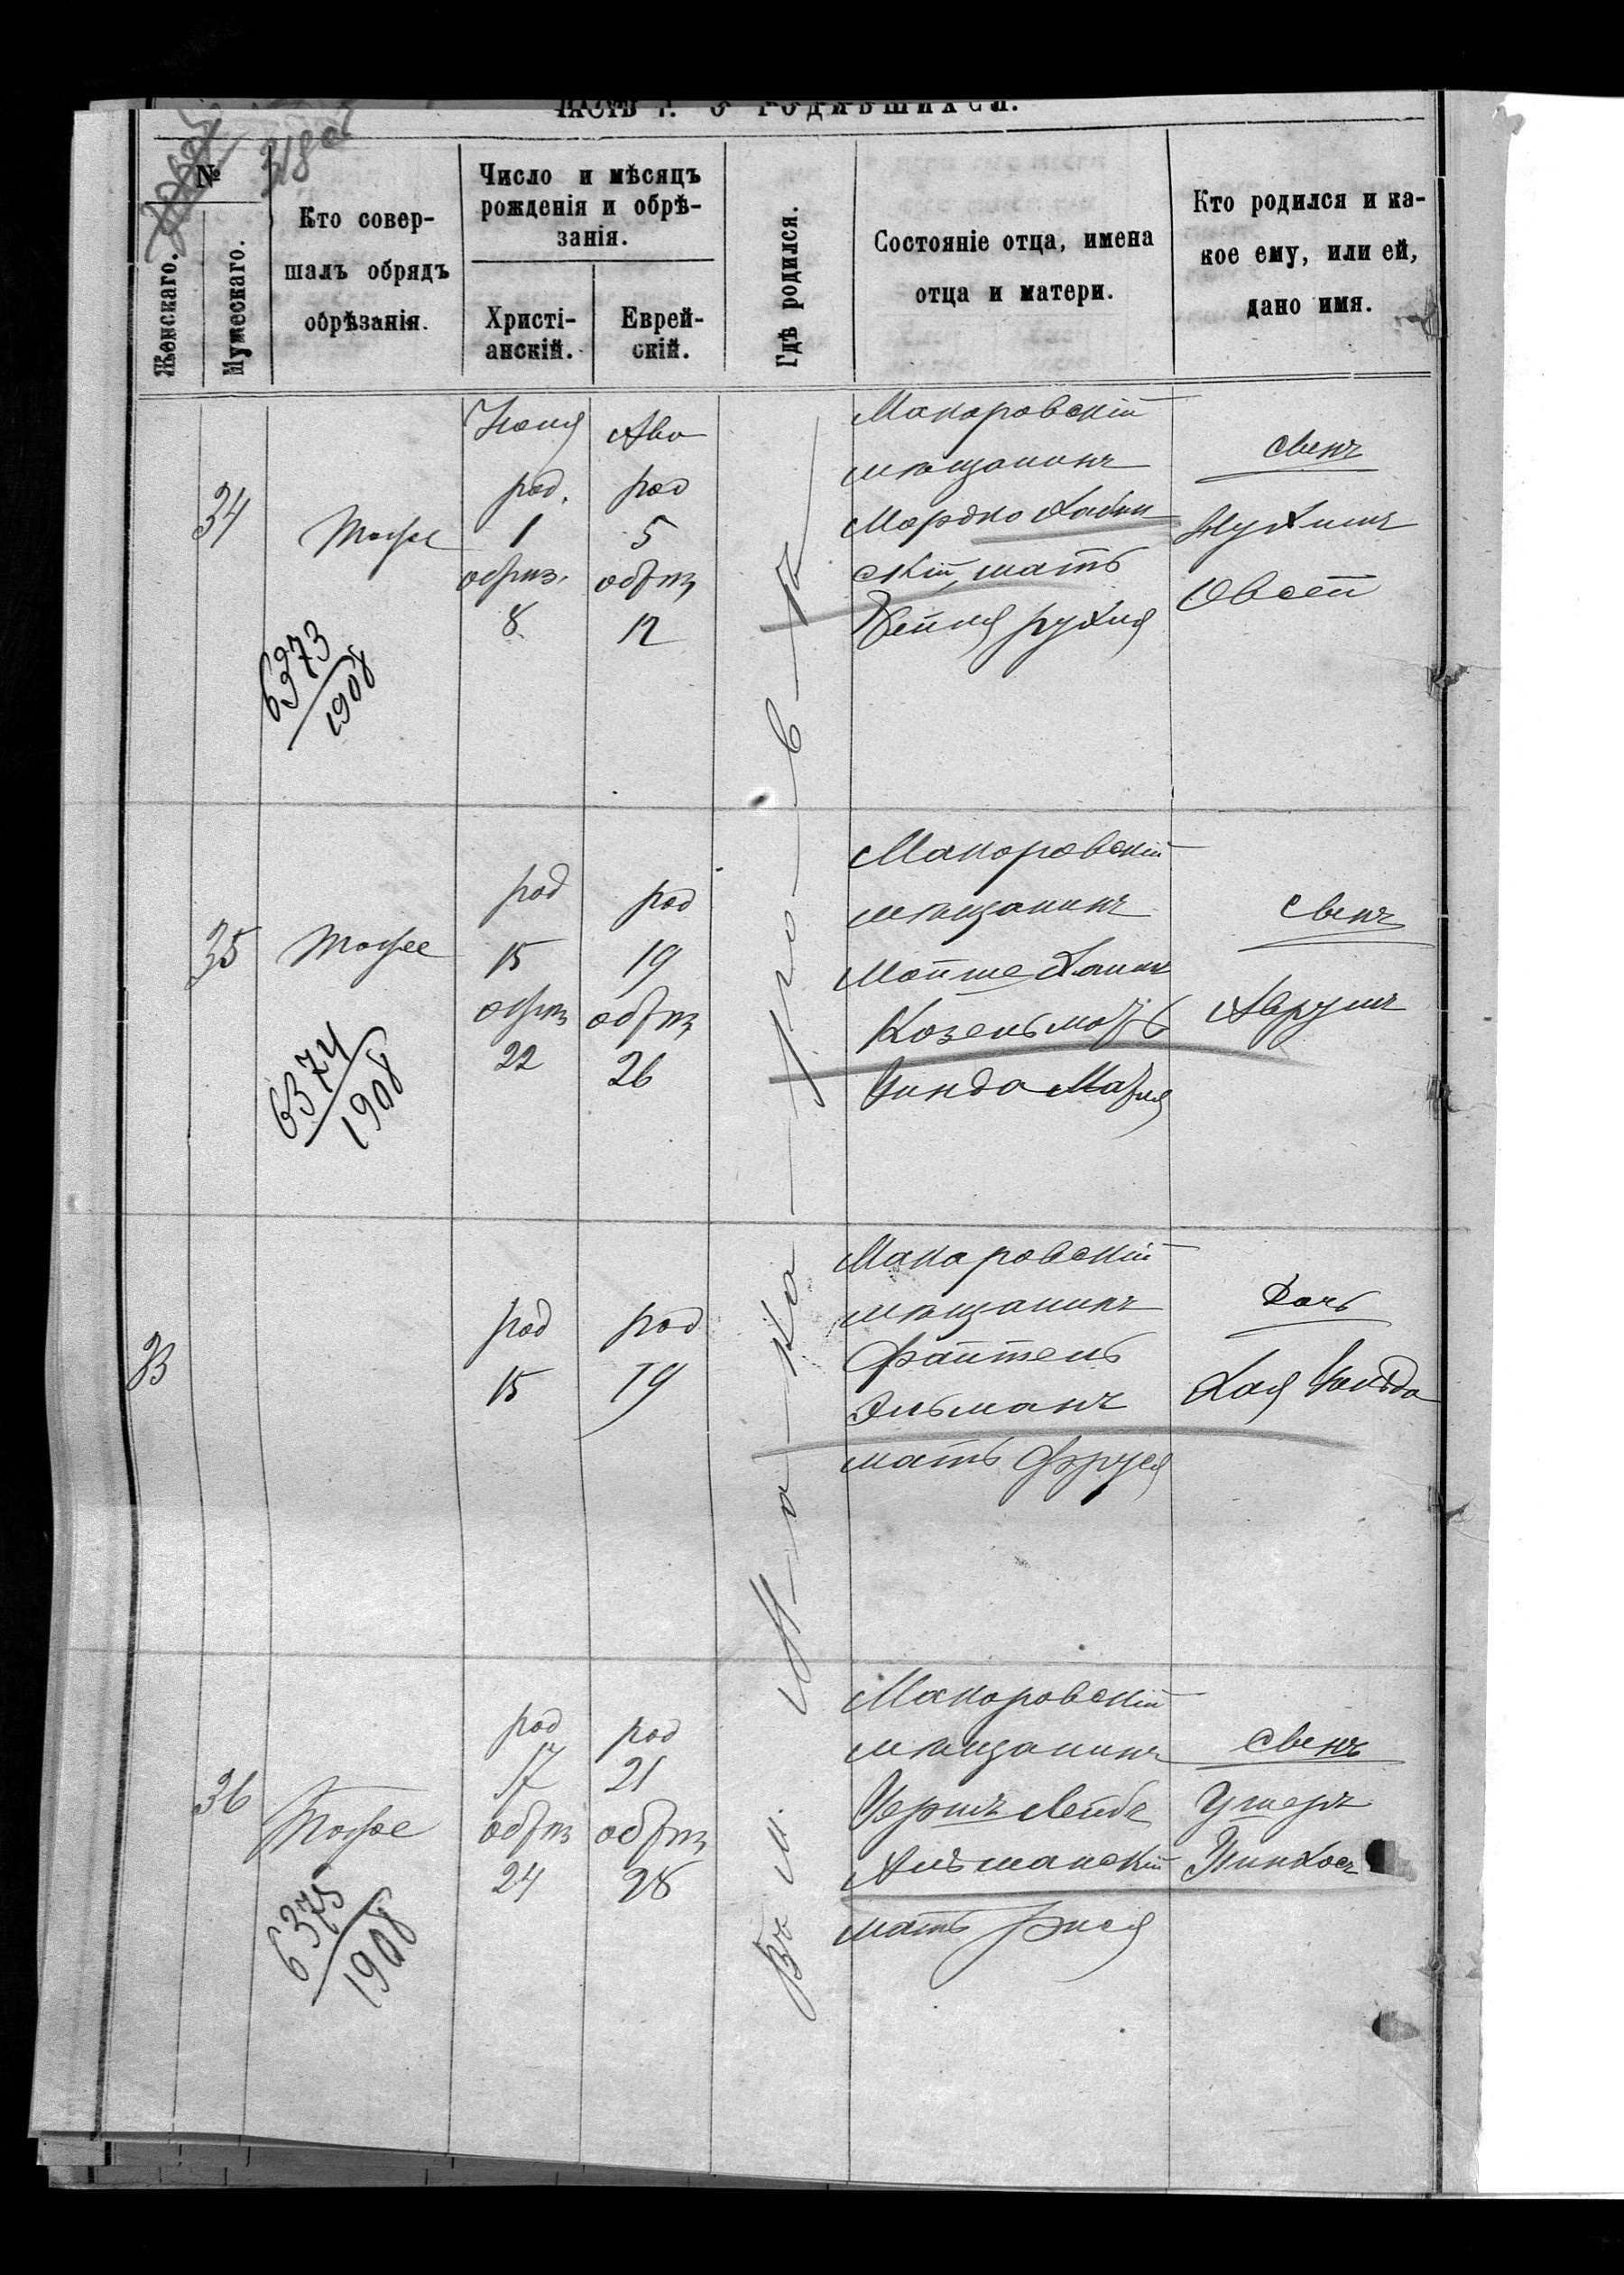 ЧАСТЬ I. О РОДИВШИХСЯ.
№
318 об
Женскаго.
Мужескаго.
Кто совер-
шалъ обрядъ
обрѣзанія.
Число и мѣсяцъ
рожденія и обрѣ-
занія.
Христі-
анскій.
Еврей-
скій.
Гдѣ родился.
Состояніе отца, имена
отца и матери.
Кто родился и ка-
кое ему, или ей,
дано имя.
Въ м. Макаровѣ
34
6373
1908
Іюля
род.
1
обрѣз.
8
Ава
род
5
обрѣз
12
Макаровскій
мѣщанинъ
Мордко
скій, мать
Бейла Рухля
сынъ
Нухимъ
Овсей
35
6374
1908
род
15
обрѣз
22
род
19
обрѣз
26
Макаровскій
мѣщанинъ
Мойше Хаимъ
Козель мать
Гинда Маля
сынъ
Аврумъ
33
род
15
род
19
Макаровскій
мѣщанинъ
Файтель
Эльманъ
мать Фруся
дочь
Хая Гольда
36
6375
1908
род
17
обрѣз
24
род
21
обрѣз
28
Макаровскій
мѣщанинъ
Гершъ Лейбъ
Альшанскій
мать Рися
сынъ
Ушеръ
Пинхосъ